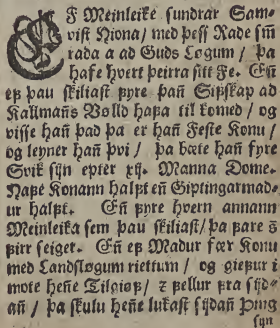 EF Meinleike sundrar Sam-
vist Hiona/ med þess Rade sm̄
rada a ad Guds Løgum/ þa
hafe hvert þeirra sitt Fe. En̄
ef þau skiliast fyre þan̄ Sifskap ad
Kallman̄s Vølld hafa til komed/ og
visse han̄ þad þa er han̄ Feste Konu/
og leyner han̄ þvi/ þa bæte han̄ fyre
Svik sijn epter xij. Manna Dome.
Hafe Konann halft en̄ Giptingarmad-
ur halft. En̄ fyre hvern annann
Meinleika sem þau skiliast/ þa fare s
firr seiger. En̄ ef Madur fær Konu
med Landsløgum riettum/ og giefur i
mote hen̄e Tilgiøf/ z fellur fra sijd-
an̄/ þa skulu hen̄e lukast sijdan̄ þing
sijn